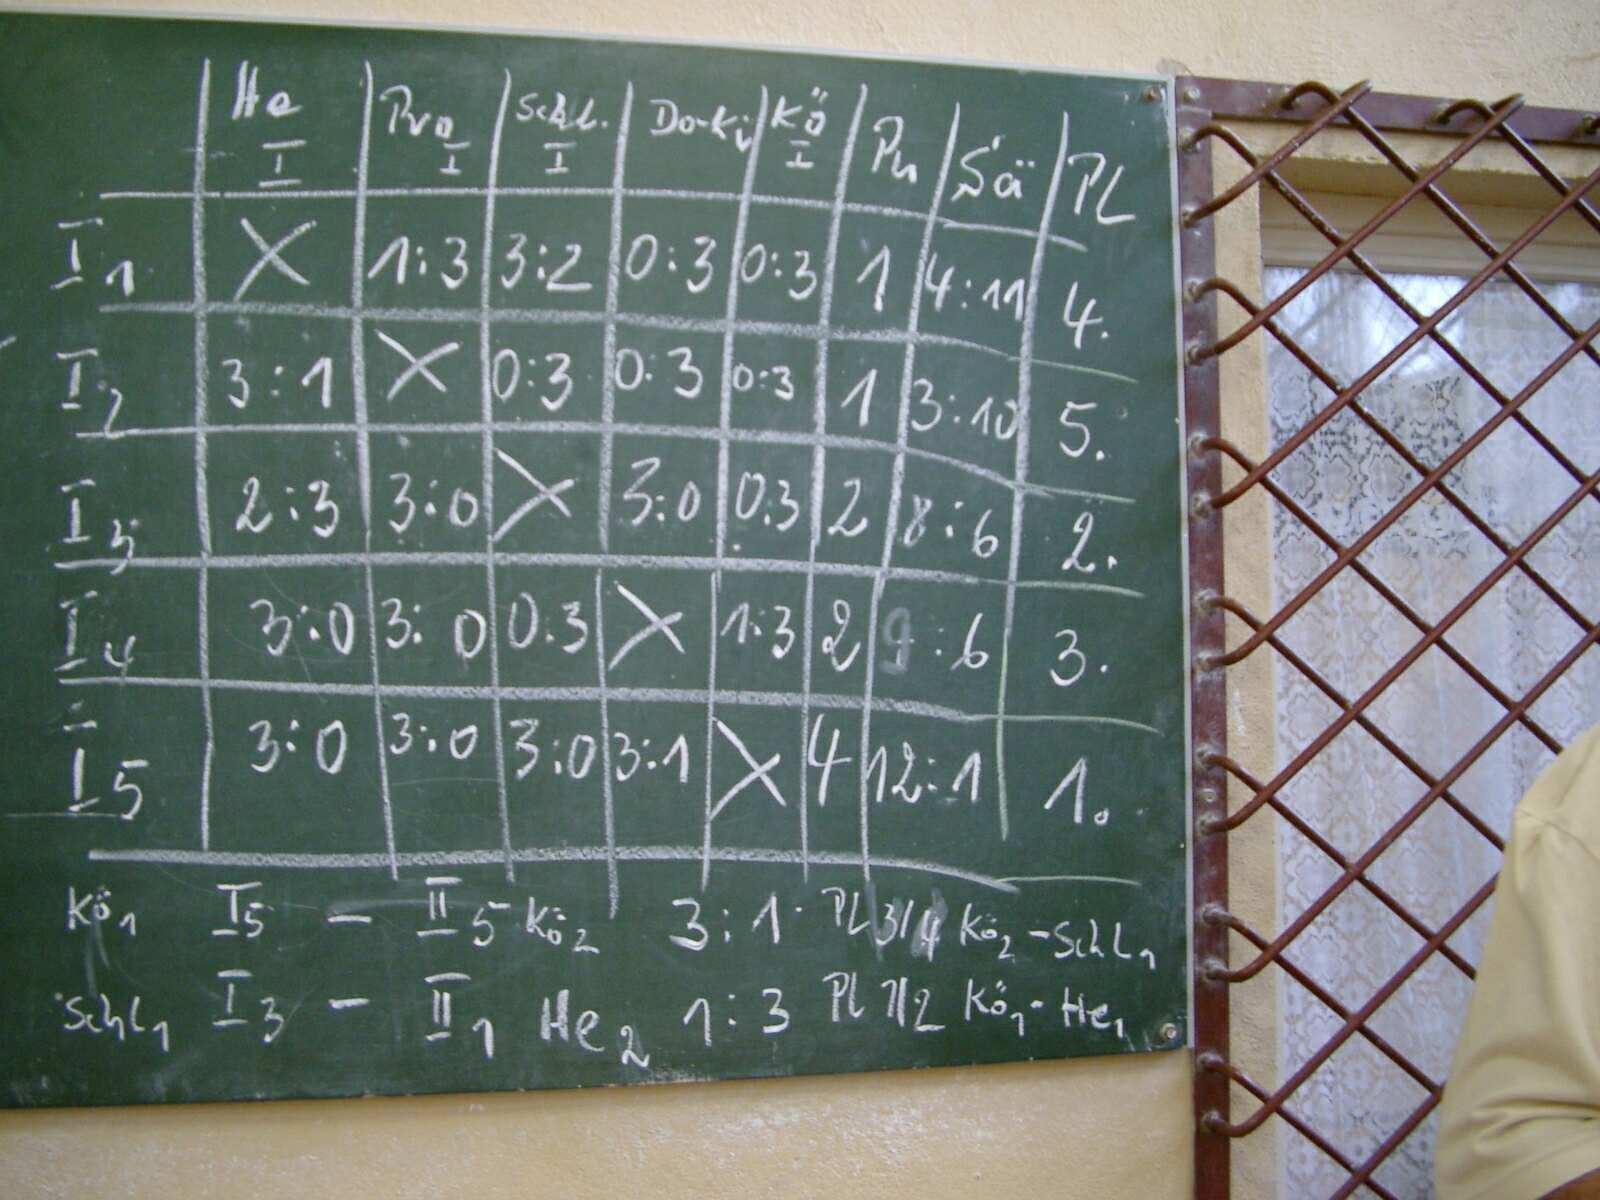 He I Pro I Schl. I Do-Ki Kö I Pu Sä PL
I1 X 1:3 3:2 0:3 0:3 1 4:11 4.
I2 3:1 X 0:3 0:3 0:3 1 3:10 5.
I3 2:3 3:0 X 3:0 0:3 2 8:6 2.
I4 3:0 3:0 0:3 X 1:3 2 9:6 3.
I5 3:0 3:0 3:0 3:1 X 4 12:1 1.
Kö1 I5 - II5 Kö2 3:1 PL 3/4 Kö2-Schl1
Schl1 I3 - II1 He2 1:3 Pl 1/2 Kö1-He1